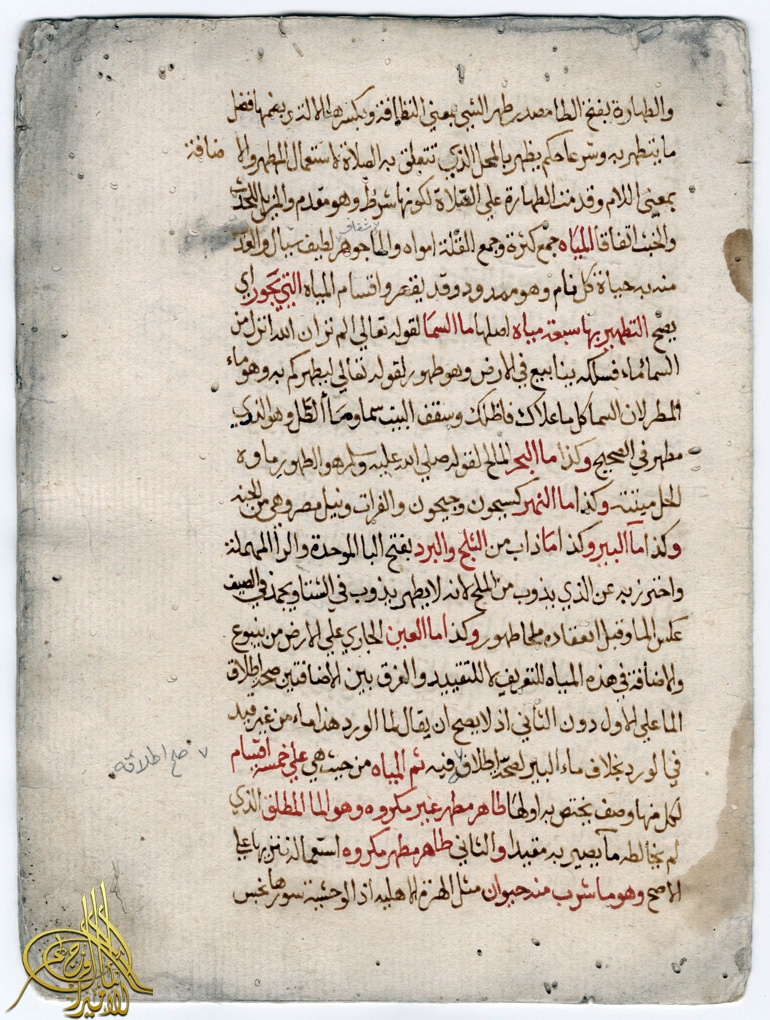 والطهارة بفتح الطا مصدر طهر الشي بمعنى النظافة وبكسرها الالة وبضمها فضل
ما يتطهر به وشرعا حكم يظهر بالمحل الذي تتعلق به الصلاة لاستعمال المطهر والاضافة
بمعنى اللام وقدمت الطهارة على الصلاة لكونها شرط وهو مقدم والمزيل للحدث
والخبث اتفاقا المياه جمع كثرة وجمع القلة امواه والما جوهر لطيف سيال والعذب
شفاف
منه به حياة كل نام وهو ممدود وقد يقصر واقسام المياه التي يجوز اي
يصح التطهير بها سبعة مياه اصلها ما السما لقوله تعالي الم تر ان الله انزل من
السماء ماء فسلكه ينابيع في الارض وهو طهور لقوله تعالي ليطهركم به وهو ماء
المطر لان السما كل ما علاك فاظلك وسقف البيت سما وما الطل وهو الندي
مطهر في الصحيح وكذا ما البحر المالح لقوله صلي الله عليه وسلم هو الطهور ماوه
الحل ميتته وكذا ما النهر كسيحون وجيحون والفرات ونيل مصر وهي من الجنة
وكذا ما البير وكذا ما ذاب من الثلج والبرد بفتح البا الموحدة والرا المهملة
واحترز به عن الذي يذوب من الملح لانه لا يطهر يذوب في الشتا ويجمد في الصيف
عكس الما وقبل انعقاده ملحا طهور وكذا ما العين الجاري علي الارض من ينبوع
والاضافة في هذه المياه للتعريف لا للتقييد والفرق بين الاضافتين صحة اطلاق
الما علي الاول دون الثاني اذ لا يصح ان يقال لما الورد هذا ماء من غير قيد
في الورد بخلاف ماء البير لصحة اطلاقه فيه ثم المياه من حيث هي علي خمسة اقسام
٧ صح اطلاقه
لكل منها وصف يختص به اولها طاهر مطهر غير مكروه وهو الما المطلق الذي
لم يخالطه ما يصير به مقيدا والثاني طاهر مطهر مكروه استعماله تنزيها علي
الاصح وهو ما شرب منه حيوان مثل الهرة الاهلية اذ الوحشية سورها نجس